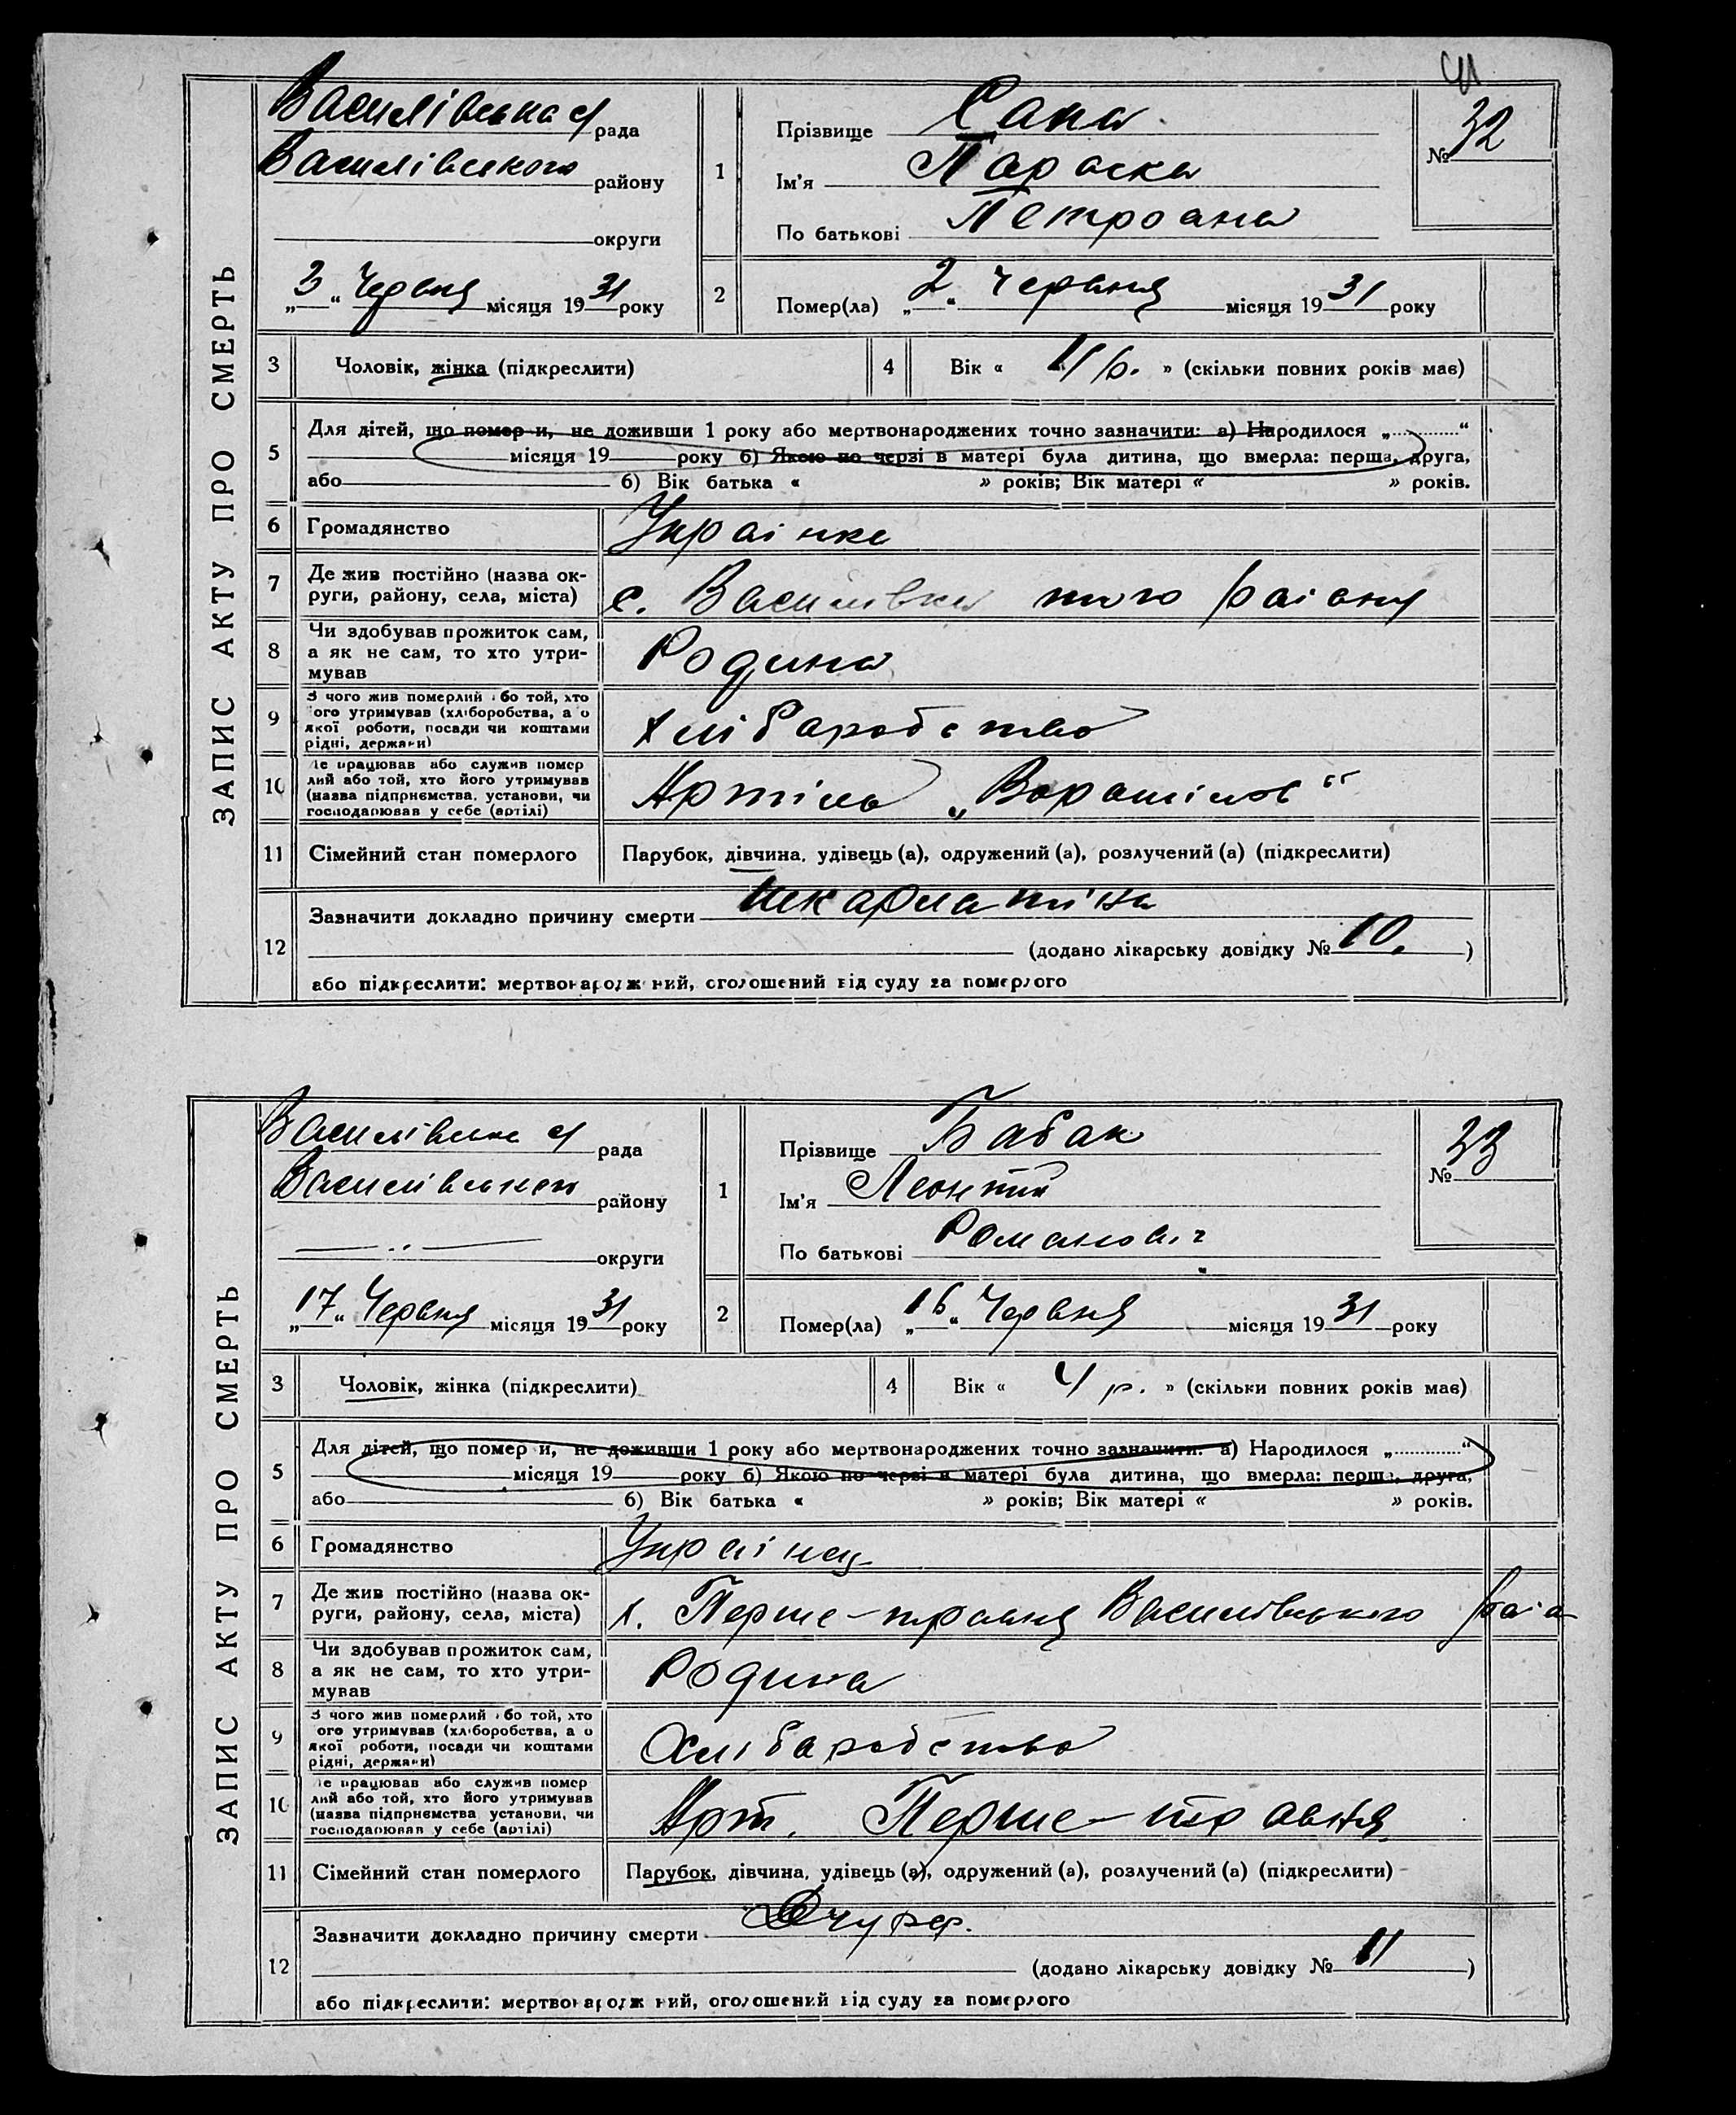 ЗАПИС АКТУ ПРО СМЕРТЬ
Василівська с/ рада
Василівського району
округи
„3“ Червня місяця 1931 року
1
Прізвище Сапа
Ім'я Параска
По батькові Петровна
№ 32
2
Помер(ла) „2“ Червня місяця 1931 року
3 Чоловік, жінка (підкреслити)
4 Вік « 11 р. » (скільки повних років має)
5 Для дітей, що померли, не доживши 1 року або мертвонароджених точно зазначити: а) Народилося „ “
місяця 19 року б) Якою по черзі в матері була дитина, що вмерла: перша, друга,
або б) Вік батька « » років; Вік матері « » років.
6 Громадянство Українка
7 Де жив постійно (назва ок-
руги, району, села, міста) с. Василівка того району
8 Чи здобував прожиток сам,
а як не сам, то хто утри-
мував Родина
9 З чого жив померлий або той, хто
його утримував (хліборобства, а о
якої роботи, посади чи коштами
рідні, держави) хліборобство
10 Де працював або служив помер
лий або той, хто його утримував
(назва підприємства, установи, чи
господарював у себе (артілі) Артіль „Ворошилов“
11 Сімейний стан померлого Парубок, дівчина, удівець (а), одружений (а), розлучений (а) (підкреслити)
12 Зазначити докладно причину смерти шкарлатіна
(додано лікарську довідку № 10.)
або підкреслити: мертвонароджений, оголошений від суду за померлого
ЗАПИС АКТУ ПРО СМЕРТЬ
Василівська с/ рада
Василівського району
округи
„17“ Червня місяця 1931 року
1
Прізвище Бабак
Ім'я Леонтій
По батькові Романович
№ 33
2
Помер(ла) „16“ Червня місяця 1931 року
3 Чоловік, жінка (підкреслити)
4 Вік « 4 р. » (скільки повних років має)
5 Для дітей, що померли, не доживши 1 року або мертвонароджених точно зазначити: а) Народилося „ “
місяця 19 року б) Якою по черзі в матері була дитина, що вмерла: перша, друга,
або б) Вік батька « » років; Вік матері « » років.
6 Громадянство Українец
7 Де жив постійно (назва ок-
руги, району, села, міста) х. Перше-травня Василівського раіо
8 Чи здобував прожиток сам,
а як не сам, то хто утри-
мував Родина
9 З чого жив померлий або той, хто
його утримував (хліборобства, а о
якої роботи, посади чи коштами
рідні, держави) Хліборобство
10 Де працював або служив помер
лий або той, хто його утримував
(назва підприємства установи, чи
господарював у себе (артілі) Арт. Перше-травня
11 Сімейний стан померлого Парубок, дівчина, удівець (а), одружений (а), розлучений (а) (підкреслити)
12 Зазначити докладно причину смерти
(додано лікарську довідку № 11)
або підкреслити: мертвонароджений, оголошений від суду за померлого